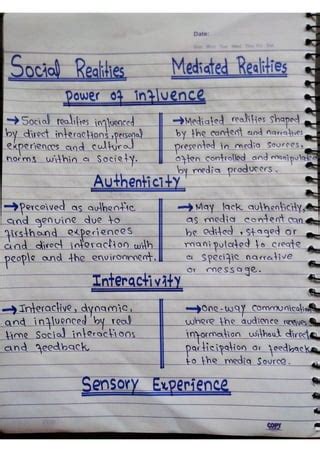 Date:
Sun Mon Tue Wed Thu Fri Sat
Social Realities Mediated Realities
Power of influence
→ Social realities influenced
by direct interactions, personal
experiences and cultural
norms within a society.
→ Mediated realities shaped
by the content and narratives
presented in media sources,
often controlled and manipulate
by media producers.
Authenticity
→ Perceived as authentic
and genuine due to
firsthand experiences
and direct interaction with
people and the environment.
→ May lack authenticity,
as media content can
be edited, staged or
manipulated to create
a specific narrative
or message.
Interactivity
→ Interactive, dynamic,
and influenced by real
time social interactions
and feedback
→ One-way communication
where the audience receives
information without direct
participation or feedback
to the media source.
Sensory Experience
COPY